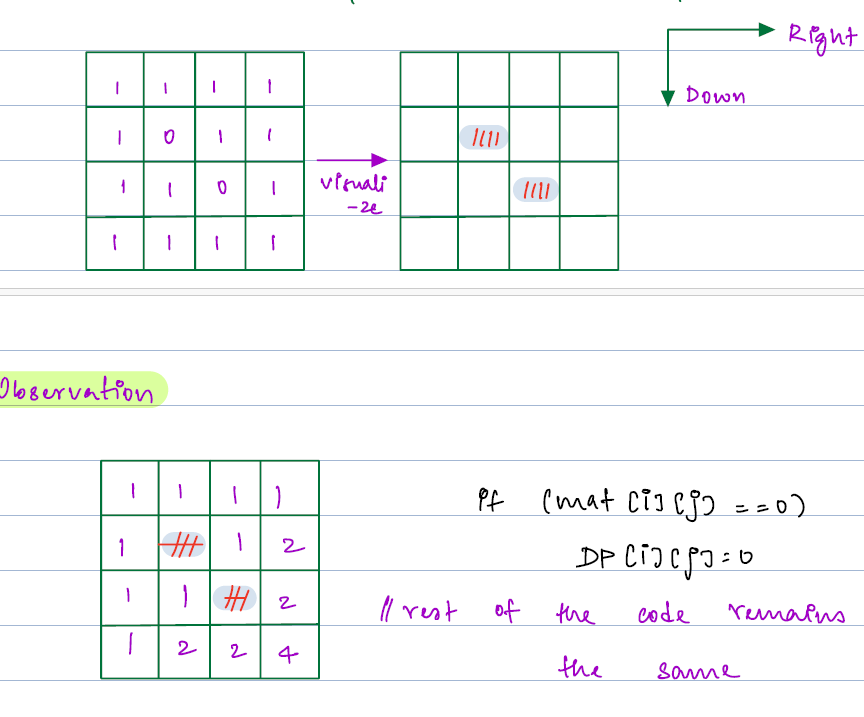 Right
Down
1 1 1 1
1 0 1 1
1 1 0 1
1 1 1 1
visuali
-ze
Observation
1 1 1 1
1 1 2
1 1 2
1 2 2 4
if (mat [i][j] ==0)
DP[i][j]=0
// rest of the code remains
the same